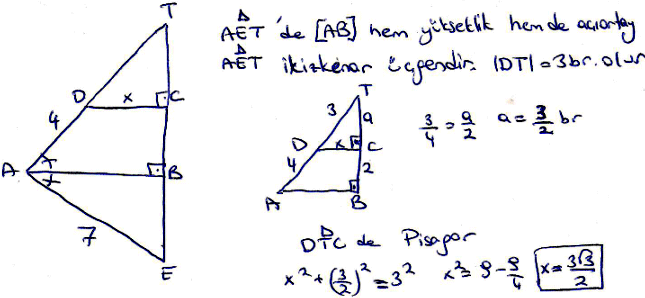 T
D
x
C
4
A
x
x
B
7
E
AET 'de [AB] hem yükseklik hemde açıortay
AET ikizkenar üçgendir. |DT|=3br.olur
T
3
a
D
x
C
4
2
A
B
3/4 = a/2 a = 3/2 br
DTC de Pisagor
x² + (3/2)² = 3² x² = 9 - 9/4 x = 3√3/2